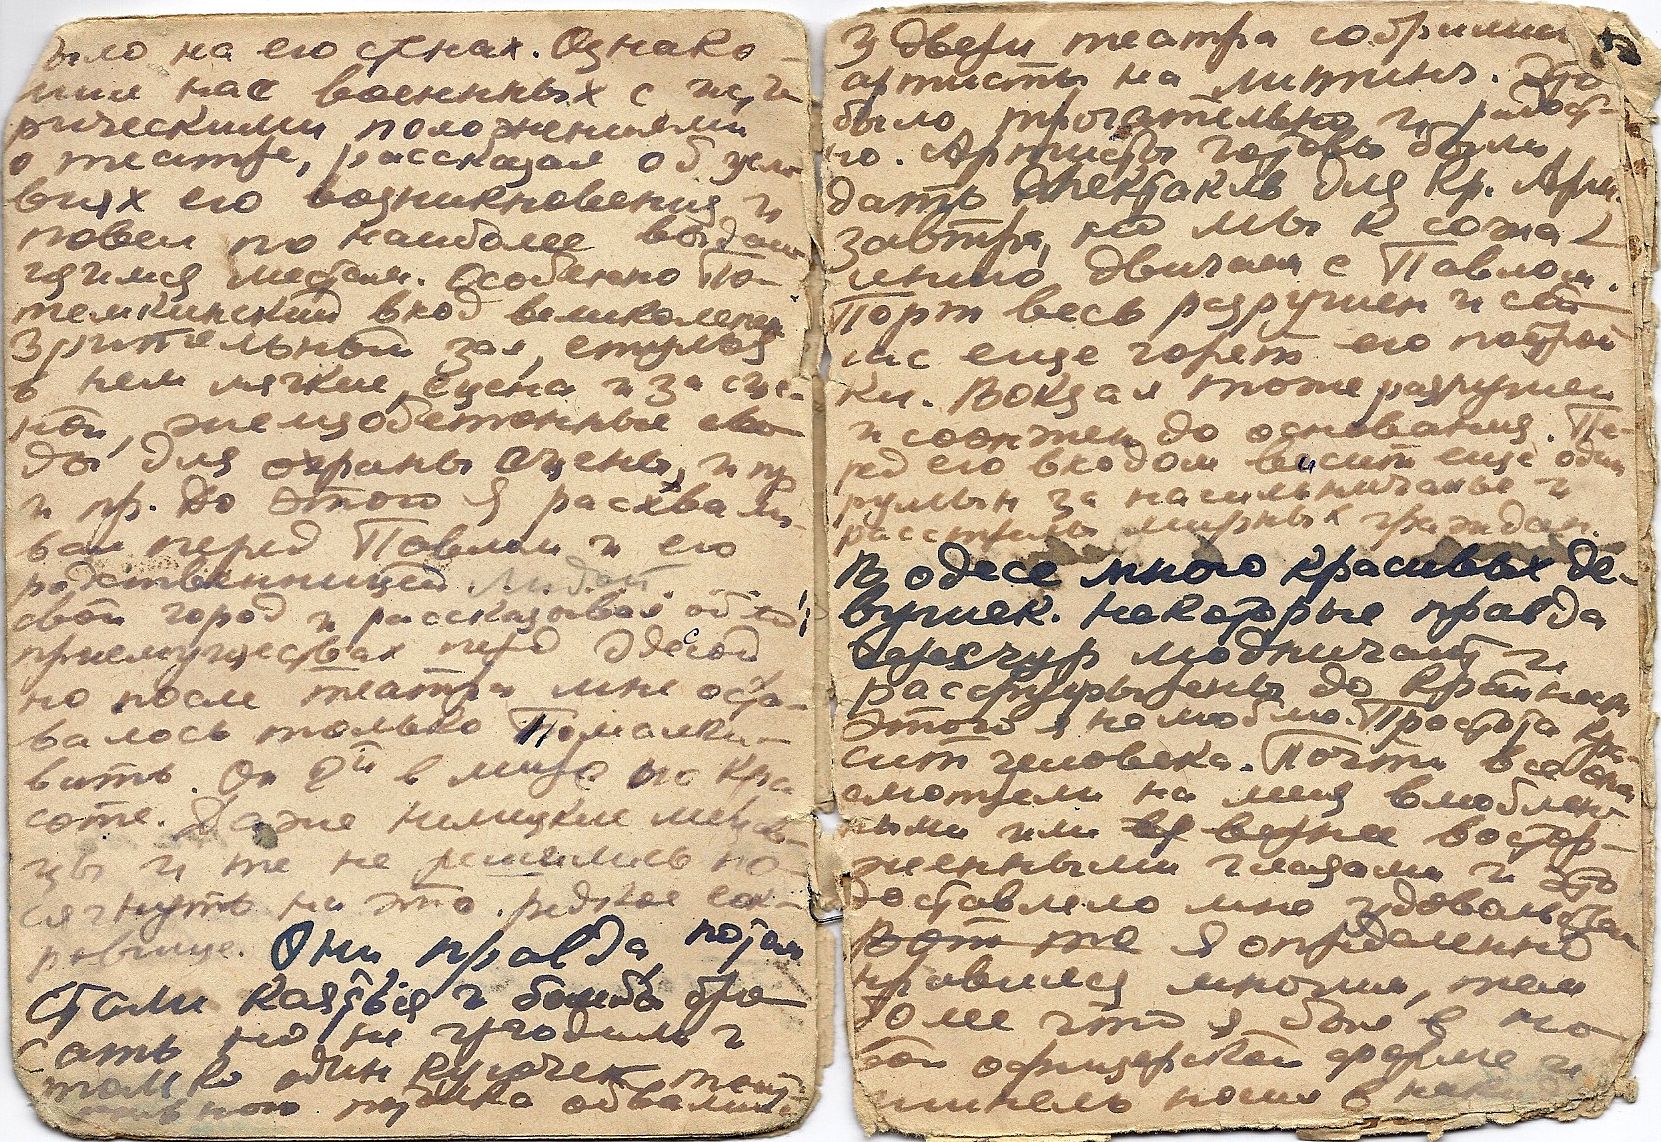 было на его стенах. Однако
нас военных с исто
рическими положениями
о театре, рассказал об усло
виях его возникновения и
повел по наиболее выдаю
щимся местам. Особенно По-
темкинский вход великолепен
Зрительный зал, стулья
в нем мягкие, сцена и за сце-
ной, железобетонные сво
ды для охраны сцены, и пр
и пр. До этого я расхвали-
вал перед Павлом и его
родственницей Людой
свой город и рассказывал об его
приемуществах перед Одесой
но после театра мне оста-
валось только Помалки-
вить. Он 2й в мире по кра
соте. Даже немецкие мерзав-
цы и те не решились по-
сягнуть на это редкое сок-
ровище. Они правда потом
стали каяться и бомбы бро
сать но не угодили и
только один кусочек
обвалил
У двери театра собрались
артисты на митинг. Это
было трогательно и радост-
но. Артисты готовы были
дать спектакль для Кр. Арм.
завтра, но мы к сожа
лению двигаем с Павлом.
Порт весь разрушен и сей
час еще горят его построй
ки. Вокзал тоже разрушен
и сожжен до основания. Пе-
ред его входом висит еще один
румын за насильничанье и
расстрелы мирных граждан.
В одесе много красивых де-
вушек. Некоторые правда
черезчур модничают и
расфуфырены до крайности
этого я не люблю. Простота кра-
сит человека. Почти все они
смотрели на меня влюблен
ными или вер вернее востор-
женными глазами и это
доставляло мне удовольствие
Вот те я определенно
нравился многим, тем
более что я был в но
вой офицерской форме и
шинель носил в